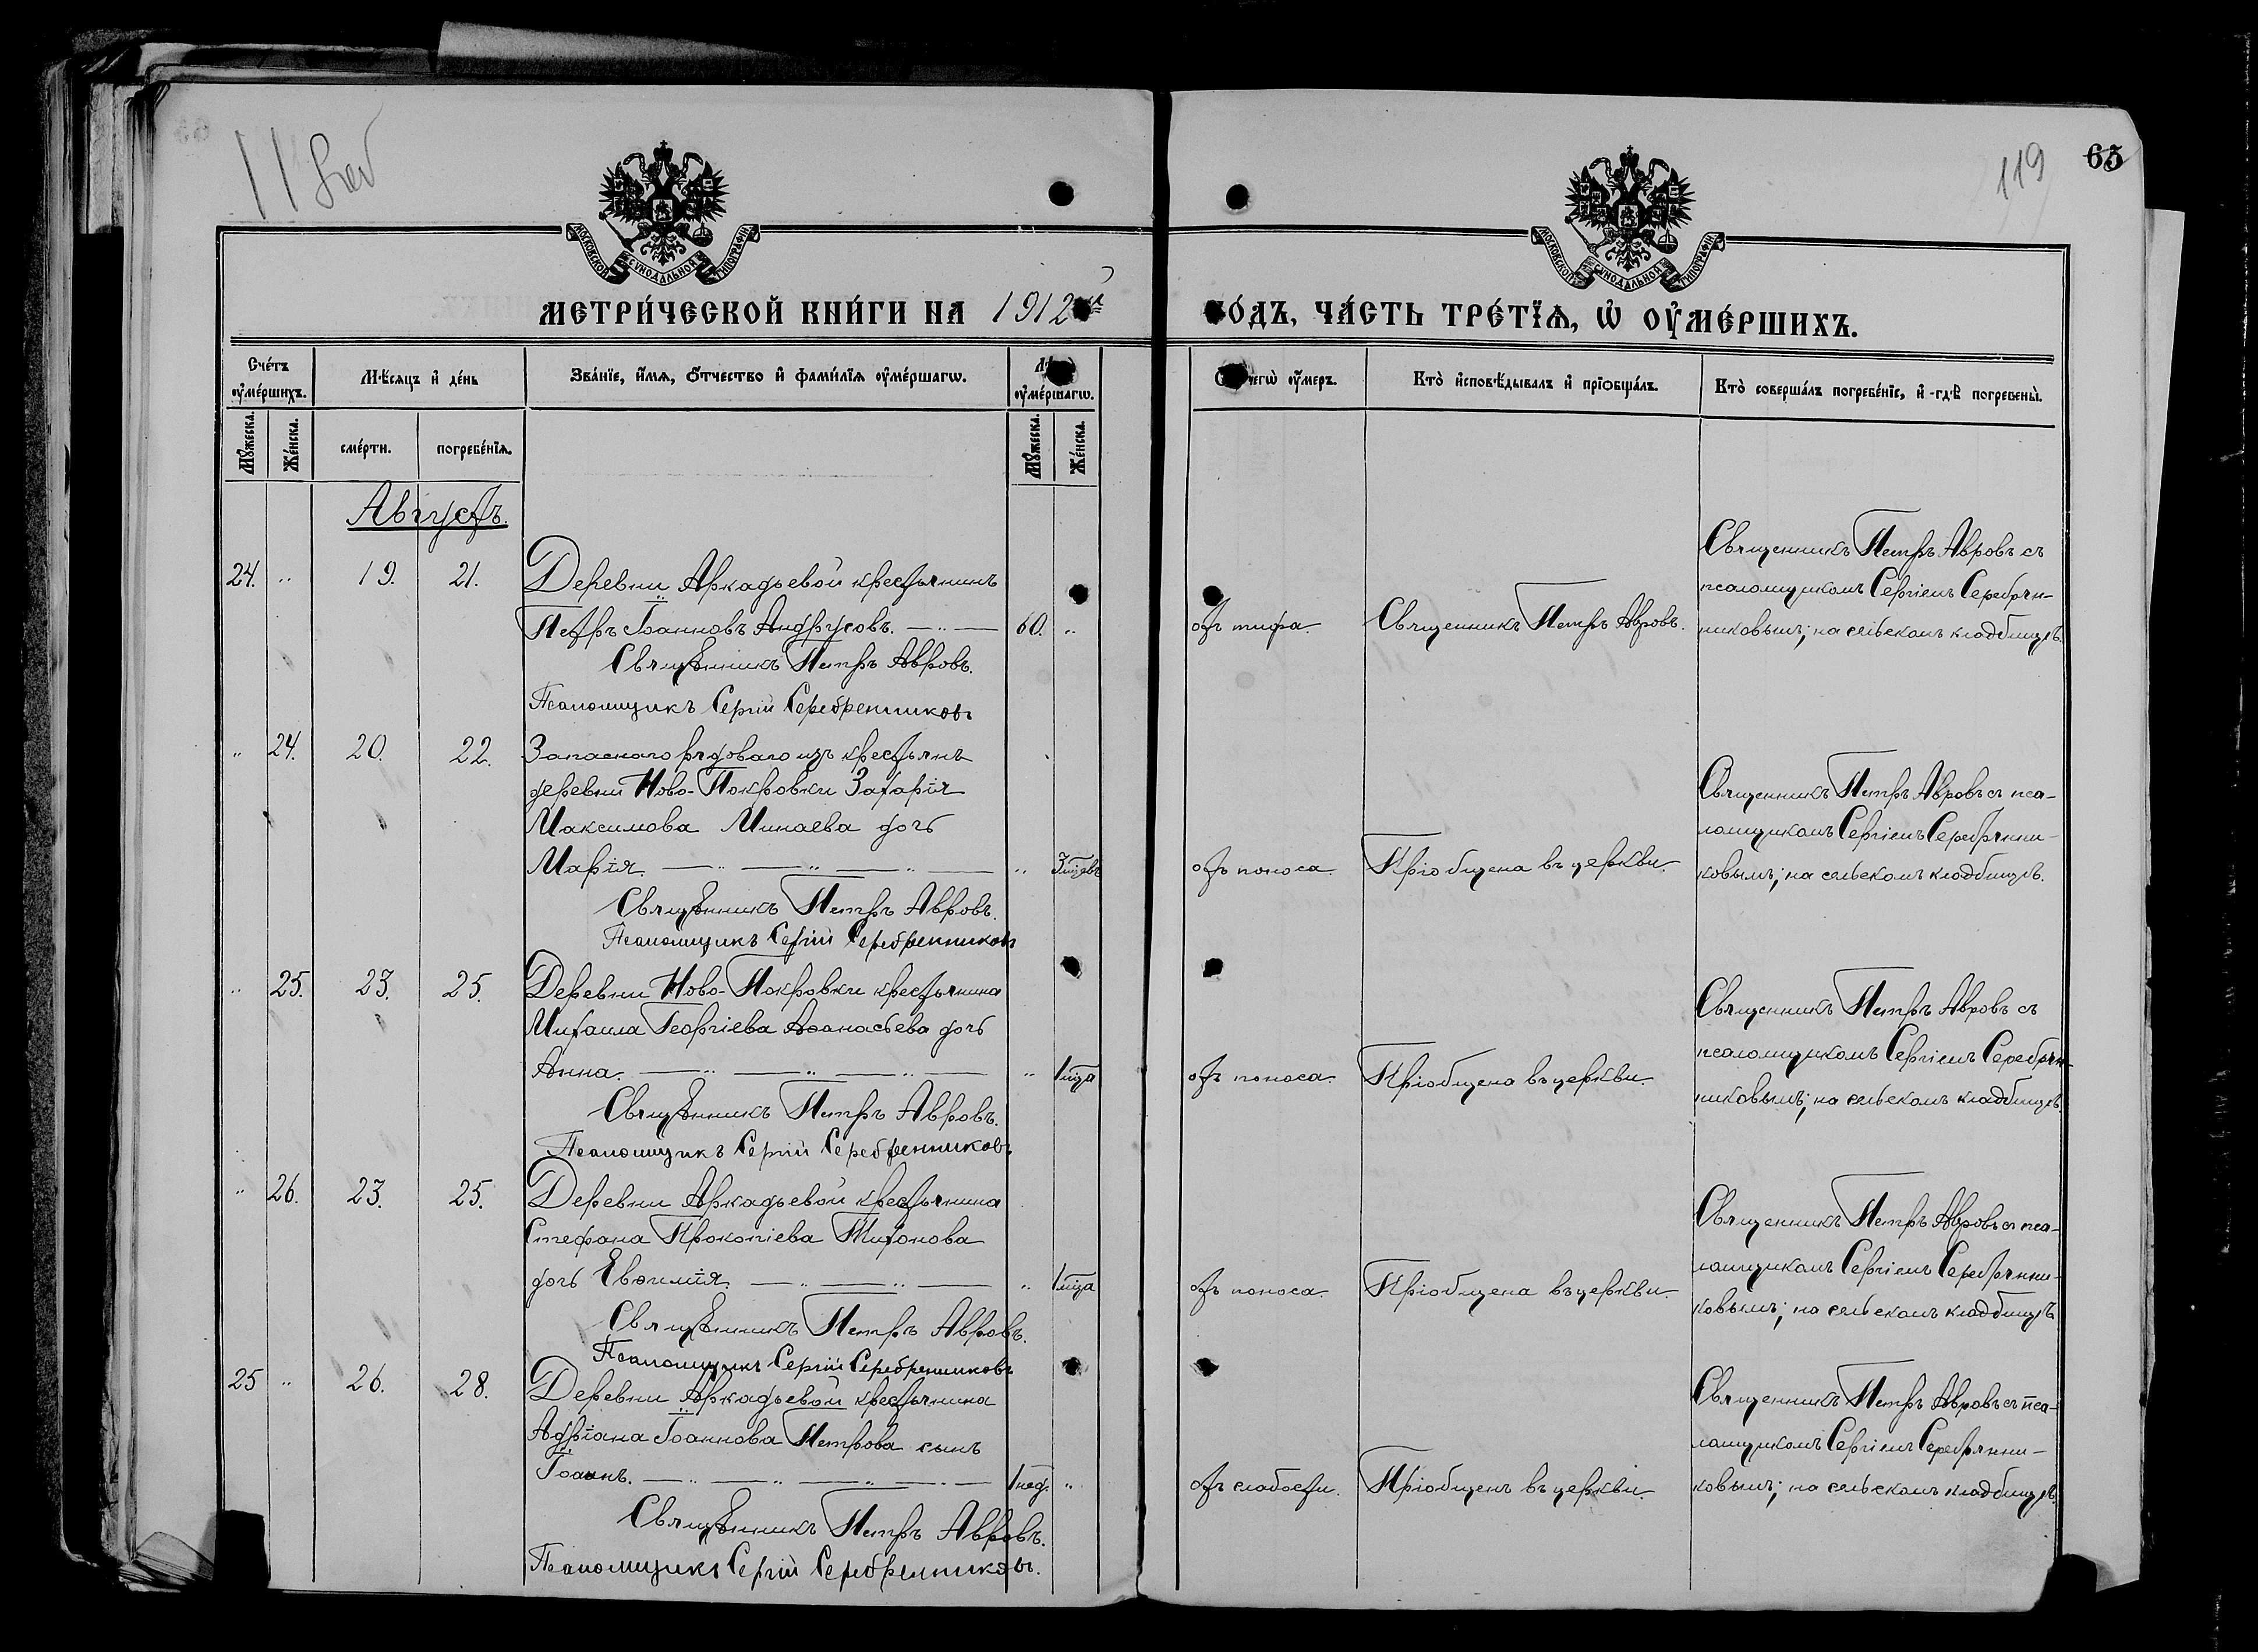 118 об
119
65
МОСКОВСКОЙ СѴНОДАЛЬНОЙ ТИПОГРАФІИ
МОСКОВСКОЙ СѴНОДАЛЬНОЙ ТИПОГРАФІИ
МЕТРИ́ЧЕСКОЙ КНИ́ГИ НА 1912й
ГО́ДЪ, ЧА́СТЬ ТРЕ́ТЇѦ, Ѡ҆ ОУ҆МЕ́РШИХЪ.
Сче́тъ оу҆ме́ршихъ.
Мѣ́сяцъ и҆ де́нь
Зва́нїе, и҆́мѧ, ѻ҆́тчество и҆ фами́лїѧ оу҆ме́ршагѡ.
оу҆ме́ршагѡ.
чегѡ̀ оу҆́меръ.
Кто̀ и҆сповѣ́дывалъ и҆ прїѻбща́лъ.
Кто̀ соверша́лъ погребе́нїе, и҆ гдѣ̀ погребены̀.
Мꙋ́жеска.
Же́нска.
сме́рти.
погребе́нїѧ.
Мꙋ́жеска.
Же́нска.
Августъ.
24. " 19. 21. Деревни Аркадьевой крестьянинъ
Петръ Іоанновъ Андрусовъ. — " — 60. "
Священникъ Петръ Авровъ.
Псаломщикъ Сергій Серебренниковъ
отъ тифа.
Священникъ Петръ Авровъ.
Священникъ Петръ Авровъ съ
псаломщикомъ Сергіемъ Серебрен-
никовымъ; на сельскомъ кладбищѣ.
" 24. 20. 22. Запаснаго рядоваго изъ крестьянъ
деревни Ново-Покровки Захарія
Максимова Минаева дочь
Марія. — " — " — " — " 3 мѣсевъ
Священникъ Петръ Авровъ.
Псаломщикъ Сергій Серебренниковъ
отъ поноса.
Пріобщена въ церкви.
Священникъ Петръ Авровъ съ пса-
ломщикомъ Сергіемъ Серебренни-
ковымъ; на сельскомъ кладбищѣ.
" 25. 23. 25. Деревни Ново-Покровки крестьянина
Михаила Георгіева Аѳанасьева дочь
Анна. — " — " — " — " 1 года
Священникъ Петръ Авровъ.
Псаломщикъ Сергій Серебренниковъ.
отъ поноса.
Пріобщена въ церкви.
Священникъ Петръ Авровъ съ
псаломщикомъ Сергіемъ Серебрен-
никовымъ; на сельскомъ кладбищѣ.
" 26. 23. 25. Деревни Аркадьевой крестьянина
Стефана Прокопіева Тихонова
дочь Евѳимія. — " — " — " 1 года
Священникъ Петръ Авровъ.
Псаломщикъ Сергій Серебренниковъ
отъ поноса.
Пріобщена въ церкви.
Священникъ Петръ Авровъ съ пса-
ломщикомъ Сергіемъ Серебренни-
ковымъ; на сельскомъ кладбищѣ
25 " 26. 28. Деревни Аркадьевой крестьянина
Адріана Іоаннова Петрова сынъ
Іоаннъ. — " — " — " — " — 1 нед. "
Священникъ Петръ Авровъ.
Псаломщикъ Сергій Серебренниковъ.
отъ слабости.
Пріобщенъ въ церкви.
Священникъ Петръ Авровъ съ пса-
ломщикомъ Сергіемъ Серебренни-
ковымъ; на сельскомъ кладбищѣ.